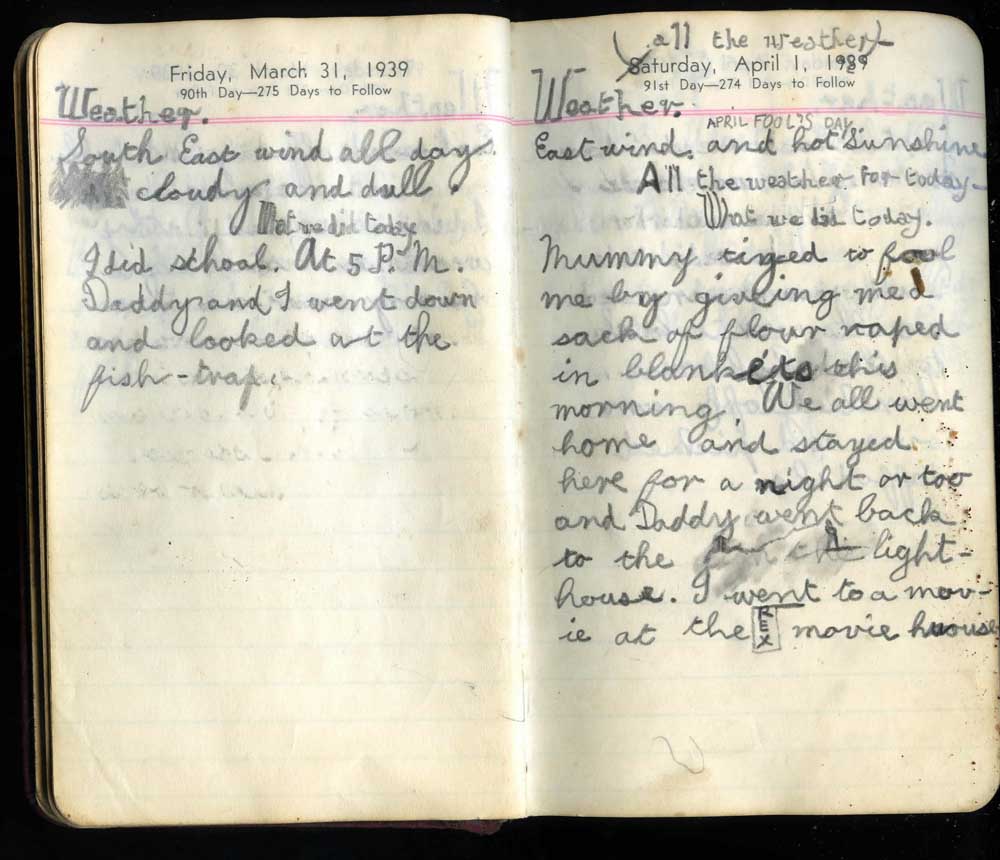 Friday, March 31, 1939
90th Day—275 Days to Follow
Weather.
South East wind all day.
cloudy and dull.
What we did today
I did school. At 5 P.M.
Daddy and I went down
and looked at the
fish-trap.
all the weather
Saturday, April 1, 1939
91st Day—274 Days to Follow
Weather.
APRIL FOOL'S DAY
East wind. and hot Sunshine
All the weather for today
What we did today.
Mummy tryed to fool
me by giveing me a
sack of flour raped
in blankets this
morning We all went
home and stayed
here for a night or too
and Daddy went back
to the light-
house. I went to a mov-
ie at the REX movie huouse